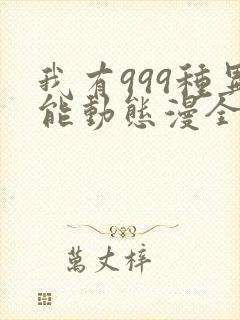 我有999種異
能動態漫全
萬丈梓